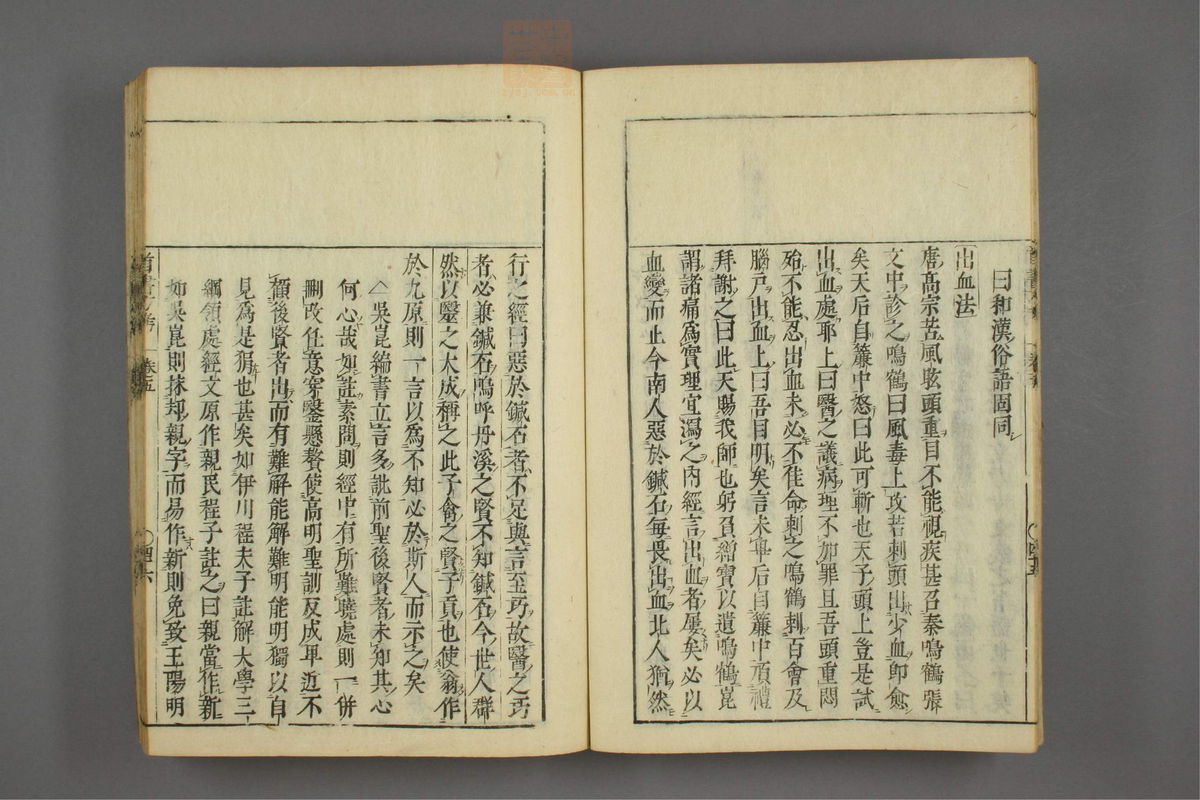 曰和漢俗語固同
出血法
唐高宗苦風眩頭重目不能視疾甚召秦鳴鶴張
文中診之鳴鶴曰風毒上攻若刺頭出少血即愈
矣天后自簾中怒曰此可斬也天子頭上豈是試
出血處耶上曰醫之議病理不加罪且吾頭重悶
殆不能忍出血未必不佳命刺之鳴鶴刺百會及
腦戸出血上曰吾目明矣言未畢后自簾中頂禮
拜謝之曰此天賜我師也躬負繒寶以遺鳴鶴崑
謂諸痛爲實理宜瀉之內經言出血者屢矣必以
血變而止今南人惡於鍼石每畏出血北人猶然
行之經曰惡於鍼石者不足與言至巧故醫之巧
者必兼鍼石嗚呼丹溪之賢不知鍼石今世人群
然以醫之大成稱之此子禽之賢子貢也使翁作
於九原則一言以爲不知必於斯人而示之矣
△吳崑編書立言多訛前聖後賢者未知其心
何心哉如註素問則經中有所難曉處則一併
刪改任意穿鑿懸贅使高明聖訓反成卑近不
顧後賢者出而有難解能解難明能明獨以自
見爲是狷也甚矣如伊川程夫子註解大學三
綱領處經文原作親民程子註之曰親當作新
如吳崑則抹却親字而易作新則免致王陽明
卷五
四十六